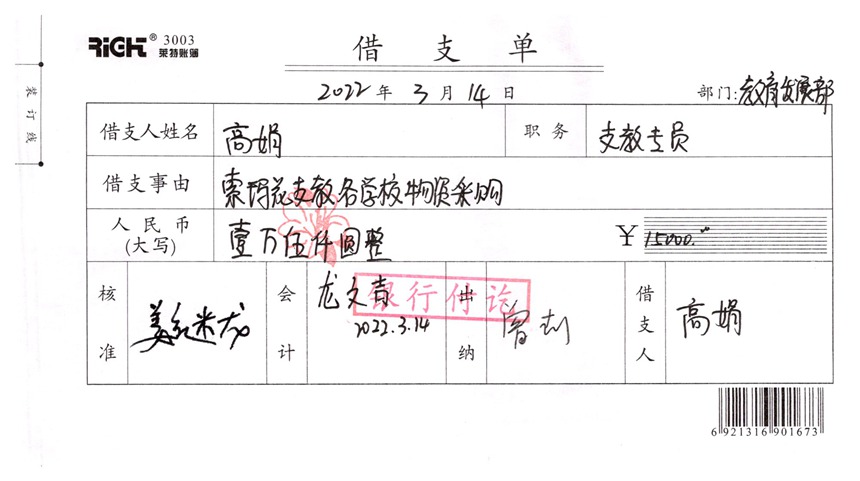 RIGHT® 3003
莱特账簿
借支单
2022年3月14日 部门:教育发展部
装订线
借支人姓名 高娟 职务 支教专员
借支事由 索玛花支教各学校物资采购
人民币(大写) 壹万伍仟圆整 ¥15000.00
核准 会计 龙文 2022.3.14 出纳 借支人 高娟
银行付讫
6 921316 901673